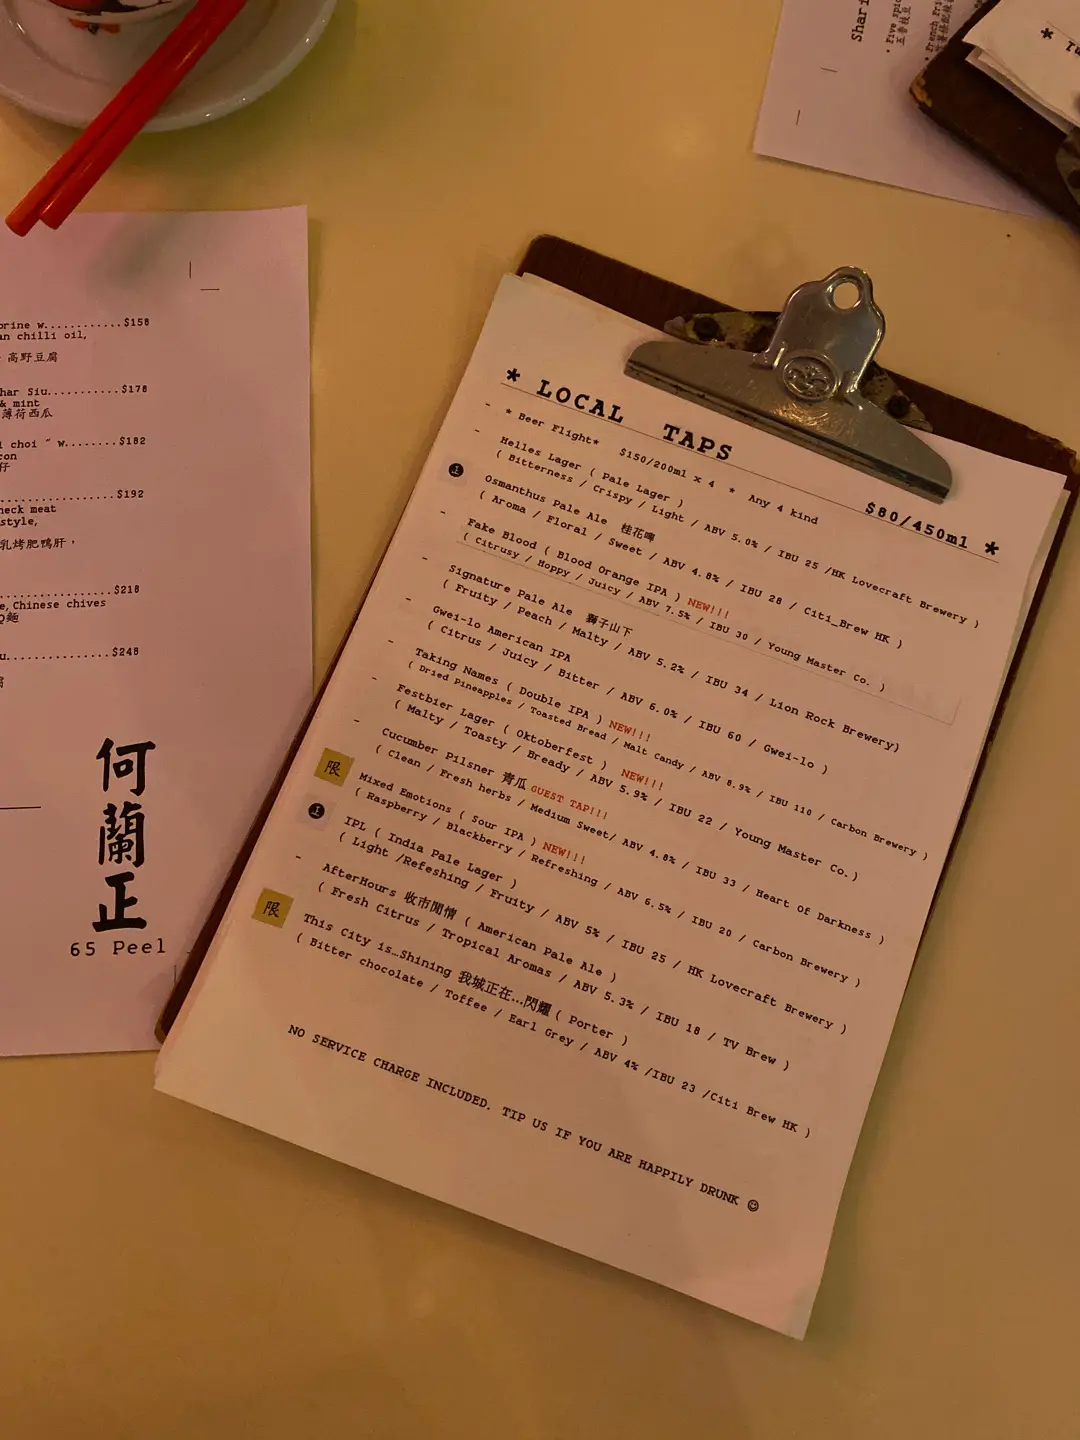 Shari
• Five spic
五香枝豆
• French Fri
orine w............$158
an chilli oil,
高野豆腐
har Siu..........$178
& mint
薄荷西瓜
i choi " w........$182
con
仔
...............$192
neck meat
style,
乳烤肥鴨肝，
................$218
e,Chinese chives
Q麵
u...............$248
何蘭正
65 Peel
* LOCAL TAPS $80/450ml *
- * Beer Flight* $150/200ml x 4 * Any 4 kind
- Helles Lager ( Pale Lager )
( Bitterness / Crispy / Light / ABV 5.0% / IBU 25 /HK Lovecraft Brewery )
正 Osmanthus Pale Ale 桂花啤
( Aroma / Floral / Sweet / ABV 4.8% / IBU 28 / Citi_Brew HK )
- Fake Blood ( Blood Orange IPA ) NEW!!!
( Citrusy / Hoppy / Juicy / ABV 7.5% / IBU 30 / Young Master Co. )
- Signature Pale Ale 獅子山下
( Fruity / Peach / Malty / ABV 5.2% / IBU 34 / Lion Rock Brewery)
- Gwei-lo American IPA
( Citrus / Juicy / Bitter / ABV 6.0% / IBU 60 / Gwei-lo )
- Taking Names ( Double IPA ) NEW!!!
( Dried Pineapples / Toasted Bread / Malt Candy / ABV 8.9% / IBU 110 / Carbon Brewery )
- Festbier Lager ( Oktoberfest ) NEW!!!
( Malty / Toasty / Bready / ABV 5.9% / IBU 22 / Young Master Co.)
- Cucumber Pilsner 青瓜 GUEST TAP!!!
( Clean / Fresh herbs / Medium Sweet/ ABV 4.8% / IBU 33 / Heart Of Darkness )
限 Mixed Emotions ( Sour IPA ) NEW!!!
( Raspberry / Blackberry / Refreshing / ABV 6.5% / IBU 20 / Carbon Brewery )
正 IPL ( India Pale Lager )
( Light /Refeshing / Fruity / ABV 5% / IBU 25 / HK Lovecraft Brewery )
- AfterHours 收市閒情 ( American Pale Ale )
( Fresh Citrus / Tropical Aromas / ABV 5.3% / IBU 18 / TV Brew )
限 This City is…Shining 我城正在…閃耀 ( Porter )
( Bitter chocolate / Toffee / Earl Grey / ABV 4% /IBU 23 /Citi Brew HK )
NO SERVICE CHARGE INCLUDED. TIP US IF YOU ARE HAPPILY DRUNK ☺